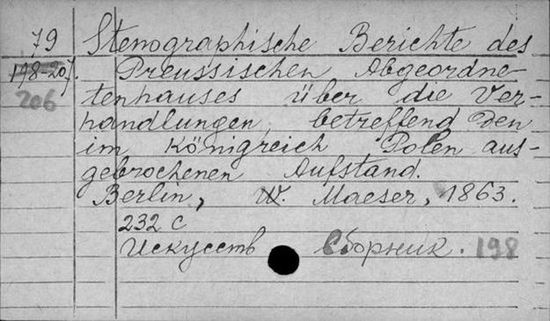 79 Stenographische Berichte des
198-207. Preussischen Abgeordne-
206 tenhauses über die Ver-
handlungen, betreffend den
im Königreich Polen aus-
gebrochenen Aufstand.
Berlin, W. Maeser, 1863.
232 с
Искусств Сборник. 198